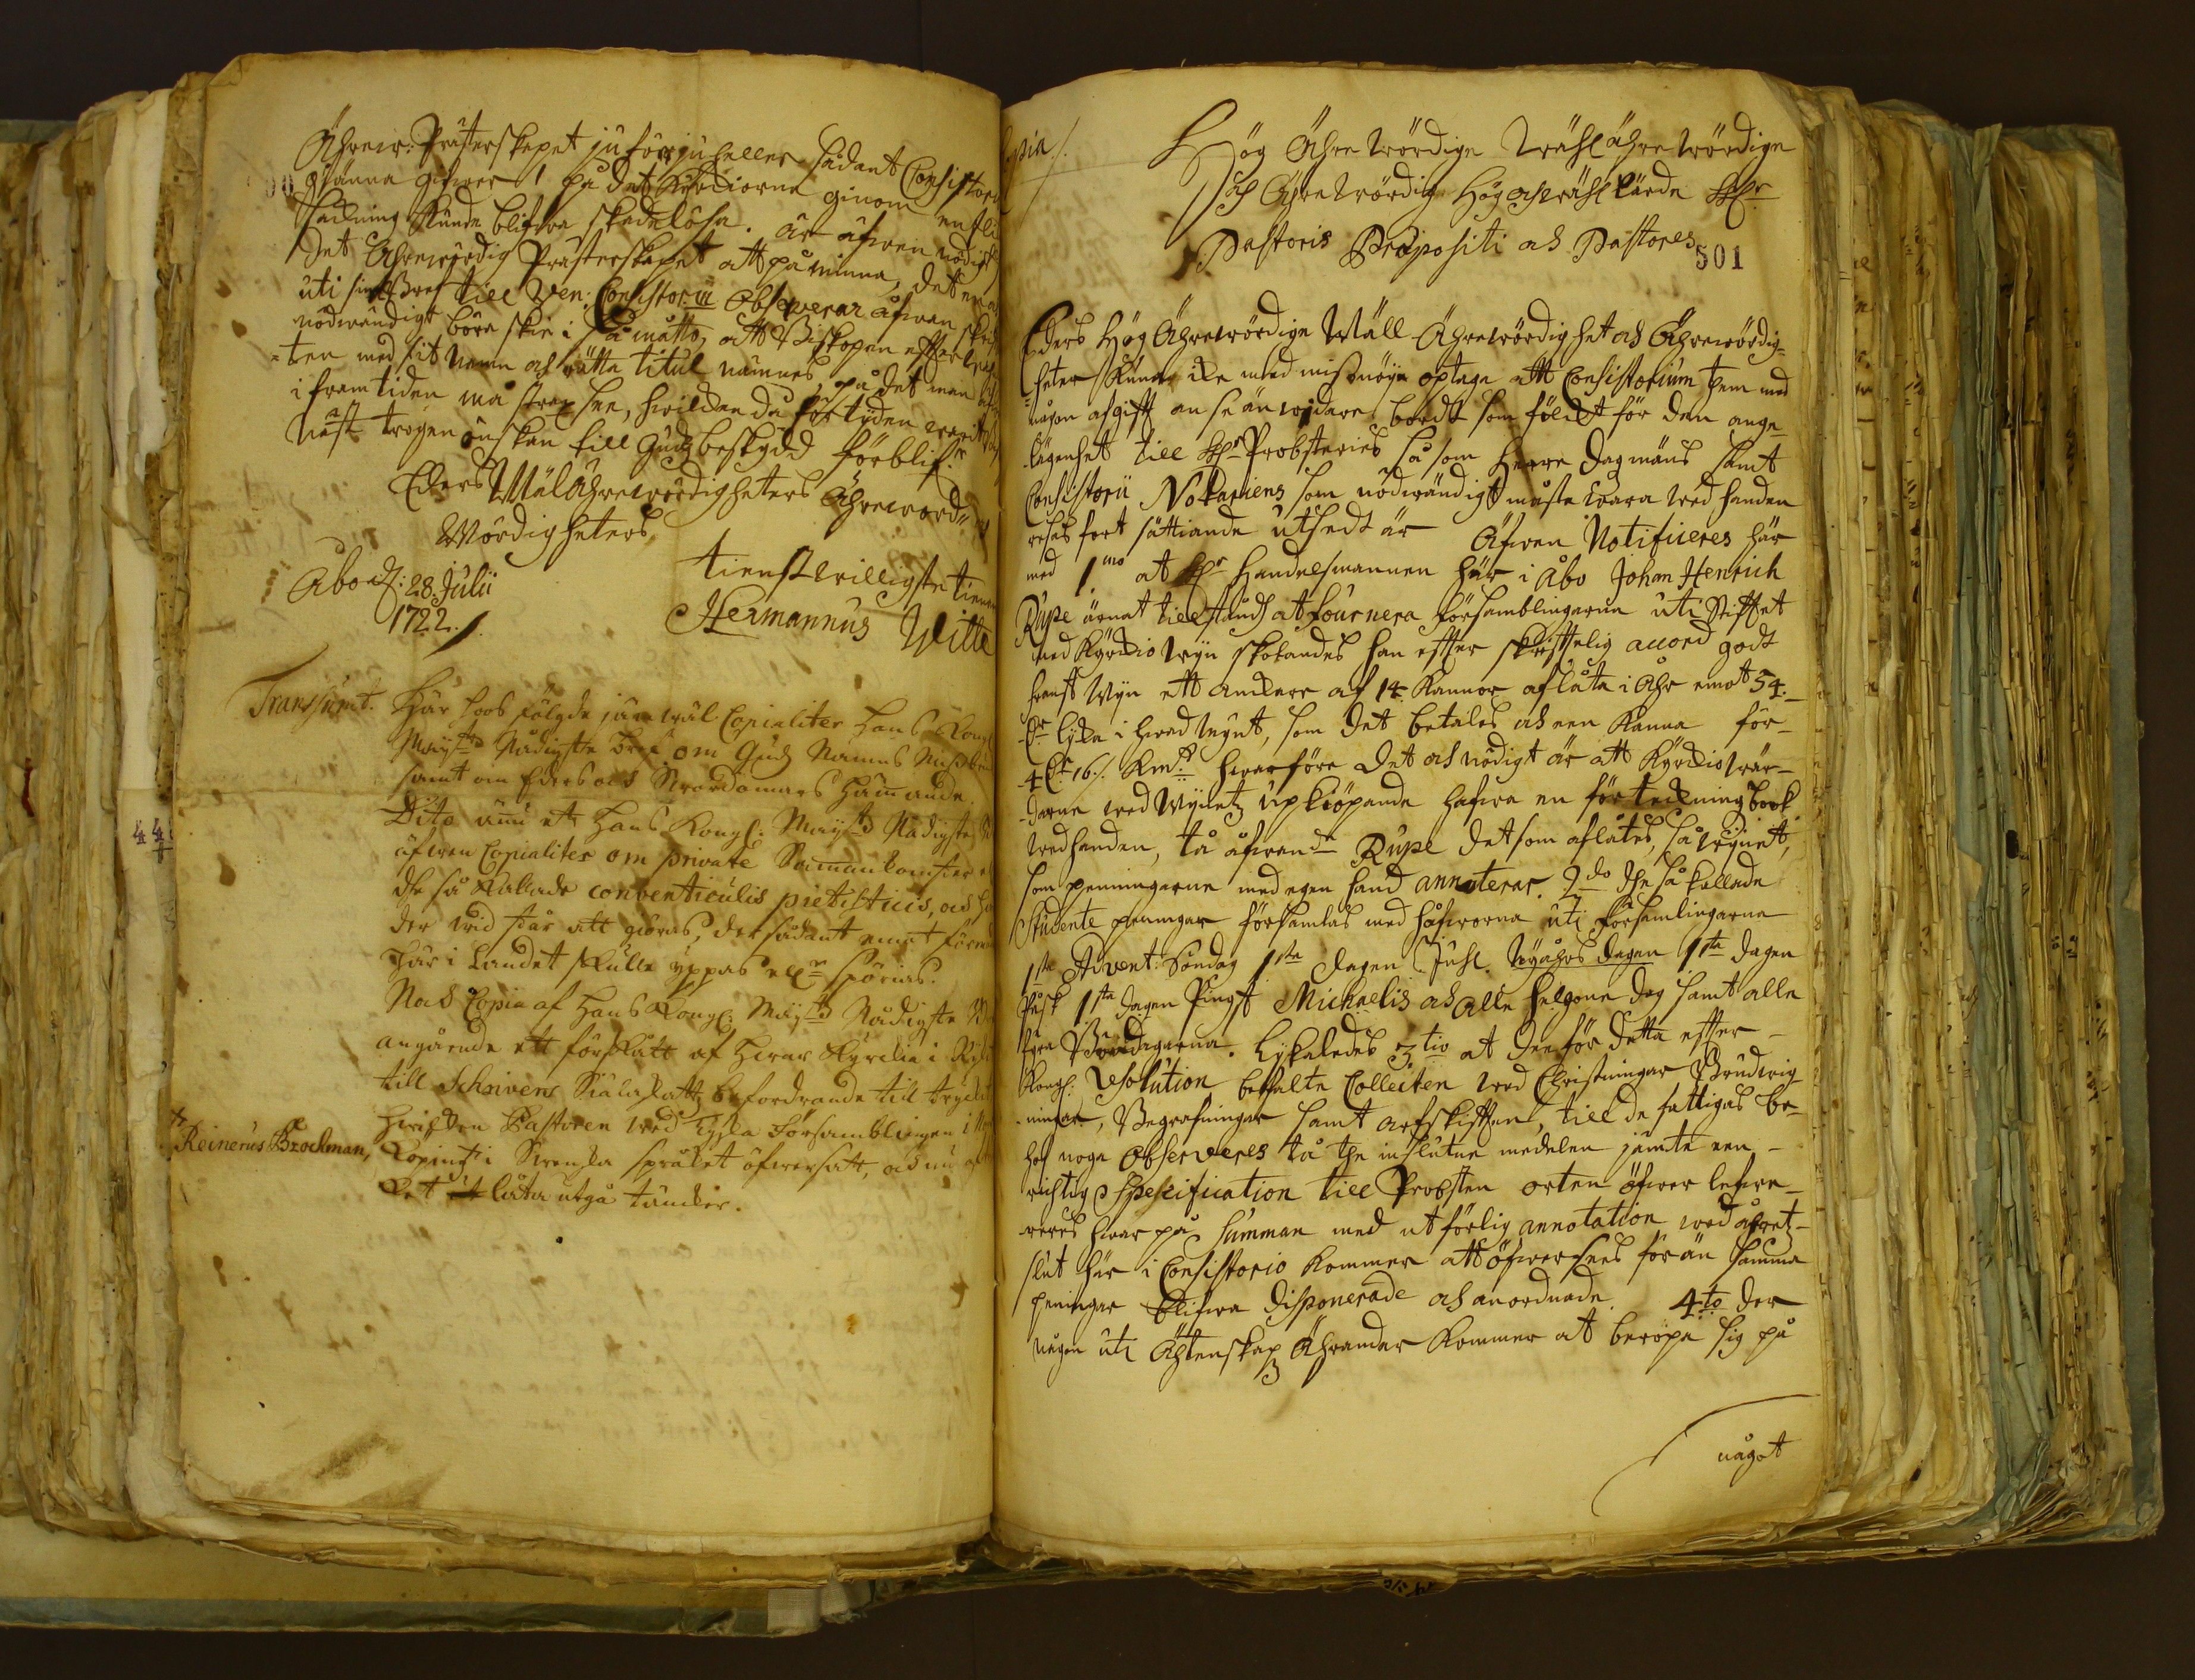 Ährew: Prästerskapet ju förr ju heller sådant Consistorio
kiänna gifwer, på det Kyrkiorne ginom en flit
Saknung kunde blifwa skadelösa. är äfwen nödigt
det Ährewördig Prästerskapet att påminna, det man
uti sin bref till Ven: Consistorium observerar äfwen
nödwändigt böra skie i så måtto, att Biskopen effter
-ten med sit namn och rätta titul nämnes, på det man
i framtiden må strax see, hwilken då för tyden warit
Näst trogen önskan till Gudz beskydd förblif:r
Eders Wälährewördigheters Ährewörd:
Wördigheters
Åbo d: 28 Julii
1722./.
tienstwilligste tienare
Hermannus Witte
Transsumt. Här hoos fölgde jämwäl Copialiter Hans Kongl:
Maij:tz Nådigste bref om Gudz Namns Missbruk
samt om Eders och Swordomars hämmande.
Dito ännu ett Hans Kongl: Maij:tz Nådigste
äfwen Copialiter om private Sammankomster
the så kallade conventiculis pietisticis, och
der wid står att giöras, der sådant emot
här i Landet skulle yppas ell:r spörias.
Noch Copia af Hans Kongl: Maij:tz Nådigste
angående ett förslått af hwar Kyrckia i
till Schrivers Siälaskatt befordrande til trycket
hwilken Pastoren wed Tyska Församblingen i
Reinerus Brockman,
i Swenska språket öfwersatt, och nu
ut låta utgå täncker.
44
pia./.
Hög Ährewördige Wähl ährewördige
och Ährewördig Hög och wähl lärde H:r
Pastoris Præpositi och Pastores
501
Eders Hög Ährewördige Wäll Ährewördighet och Ährewördig-
heter kunna icke med missnöje optaga att Consistorium them med
någon afgift an se än widare bordt som fölckt för den ange-
lägenhet till H:r Probsteries så som Herre dagmäns samt
Consistorii Notariens som nödwändigt måste wara wed handen
reses fort sättiande utsedt är Äfwen Notificeres här
med 1.mo at H:r Handelsmannen här i Åbo Johan Henrich
Rupe ärnat till stånd at fournera församblingarna uti Stiftet
med Kyrckio Wyn skolandes han effter skrifftelig accord godt
franst Wyn ett anckare af 14 Kannor aflåta i Åhr emot 54.
D:r lyka i hwad Mynt, som det betales och een Kanna för-
4 D:r 16./. Km:t hwarföre det och nödigt är att Kyrckiowär-
darne wed Wynetz upkiöpande hafwa en förteckning book
wed handen, tå äfwen Rupe det som aflåtes, så wynett,
som penningarne med egen hand annoterar. 2.do The så kallade
Studente penningar församlas med håfwarna uti församlingarna
1.sta Advent: Söndag 1.sta dagen Juhl. Nyåhrs dagen 1.sta dagen
Påsk 1.sta dagen Pingst Michaelis och Alle helgone dag samt alle
fyra Bönedagarna. Lykaledes 3.tio at den för detta effter
Kongl: resolution befalte Collecten wed Christningar Brudwig-
ningar, Begrafningar samt arfskifften, till de fattigas be-
hof noga observeres tå the inslutne medelen jämte een
richtig Specification till Probsten orten öfwer lefwe-
reres hwar på summan med utförlig annotation wed åhret-
slut här i Consistorio kommer att öfwersees för än samma
peningar blifwa disponerade och anordnade. 4.to Der
någon uti Ächtenskaps Ährender kommer at beropa sig på
något